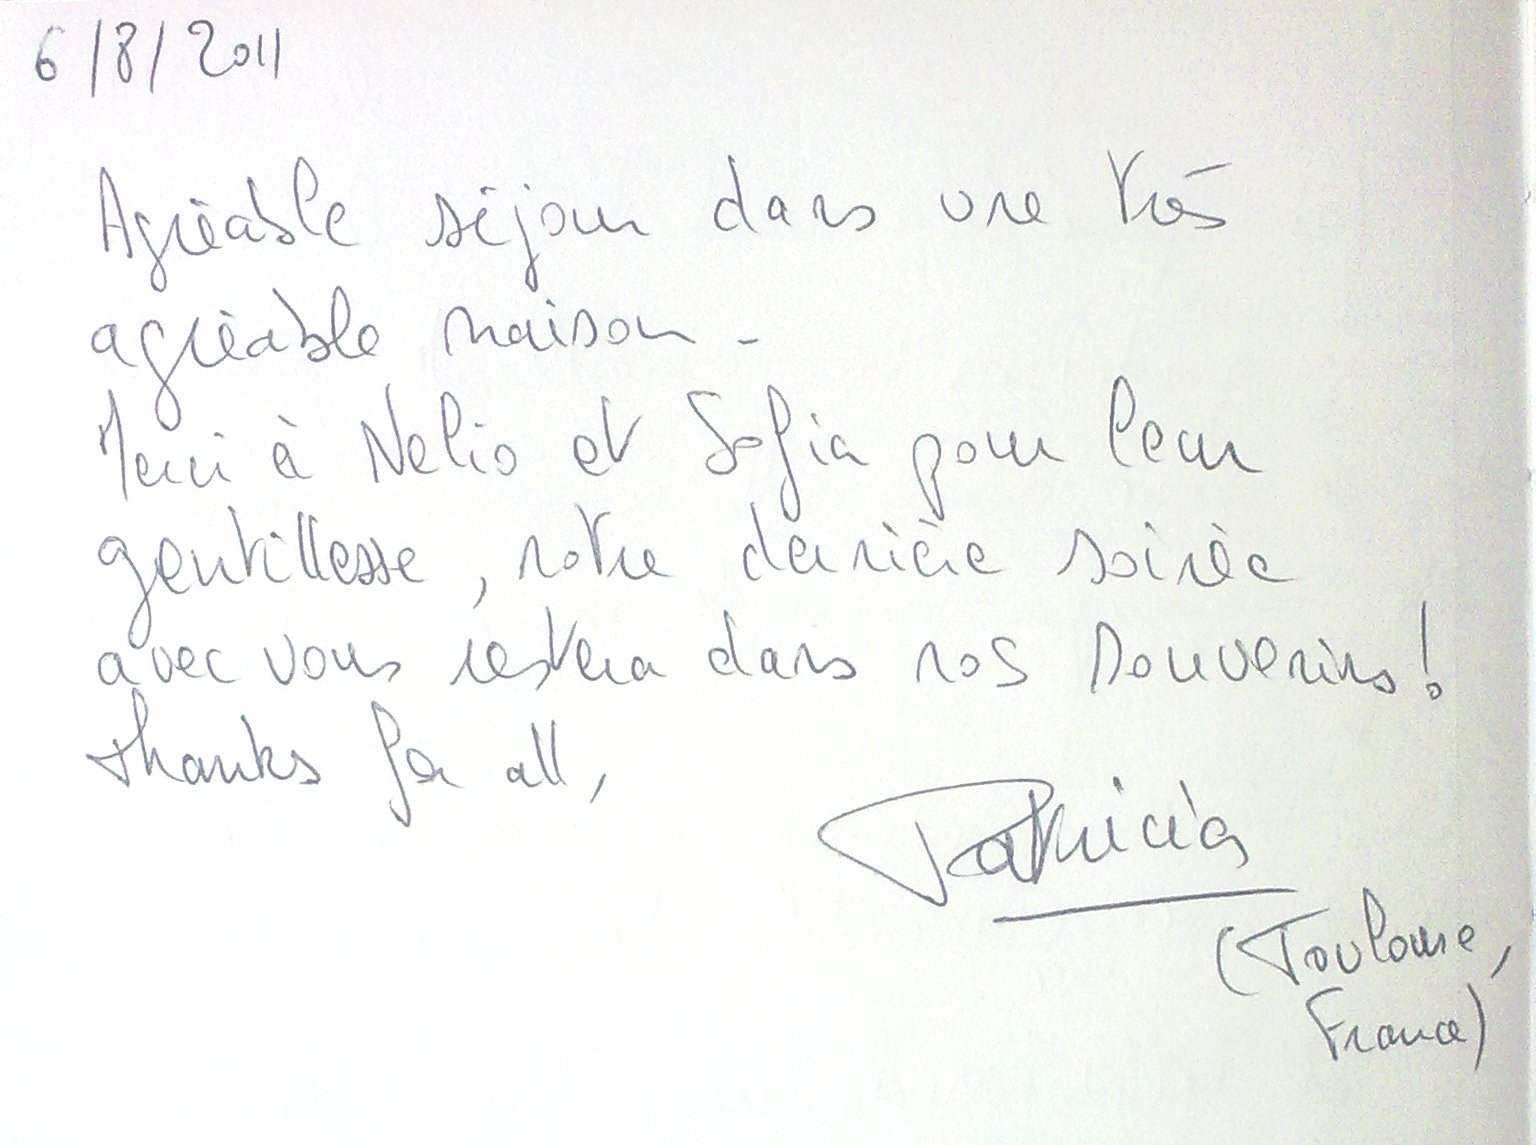 6/8/2011
Agréable séjour dans une très
agréable maison -
Merci à Nelio et Sofia pour leur
gentillesse, notre dernière soirée
avec vous restera dans nos souvenirs!
thanks for all,
Patricia
(Toulouse,
France)